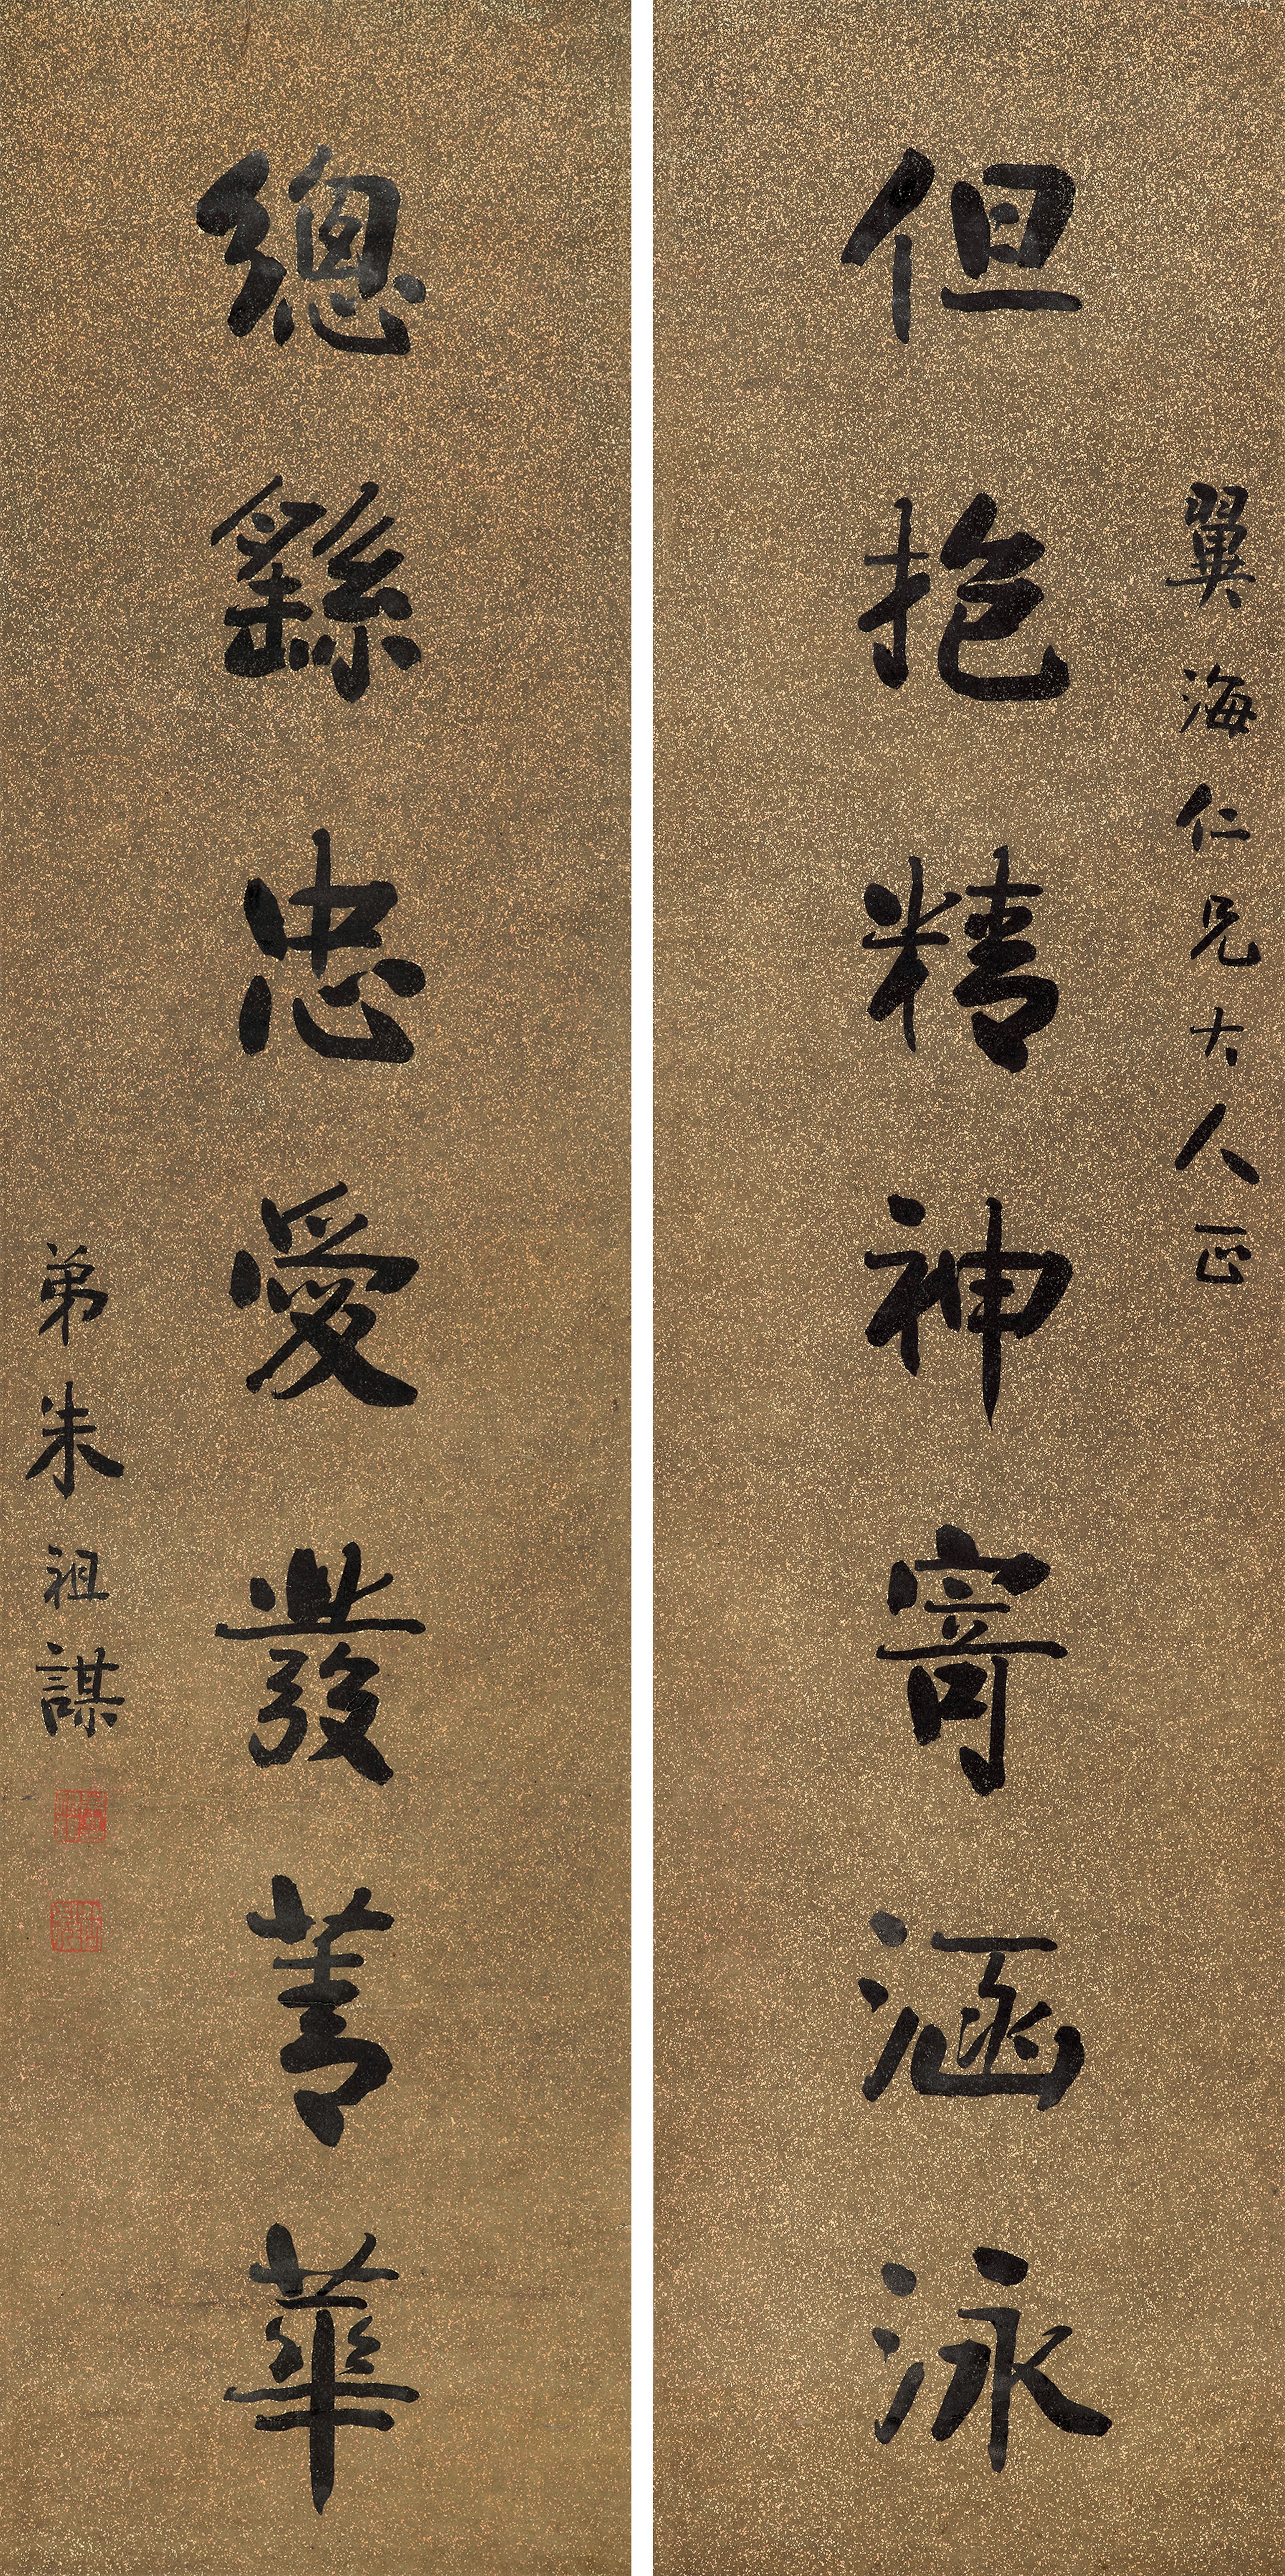 翼海仁兄大人正
但抱精神寄涵泳
總繇忠愛發菁華
弟朱祖謀